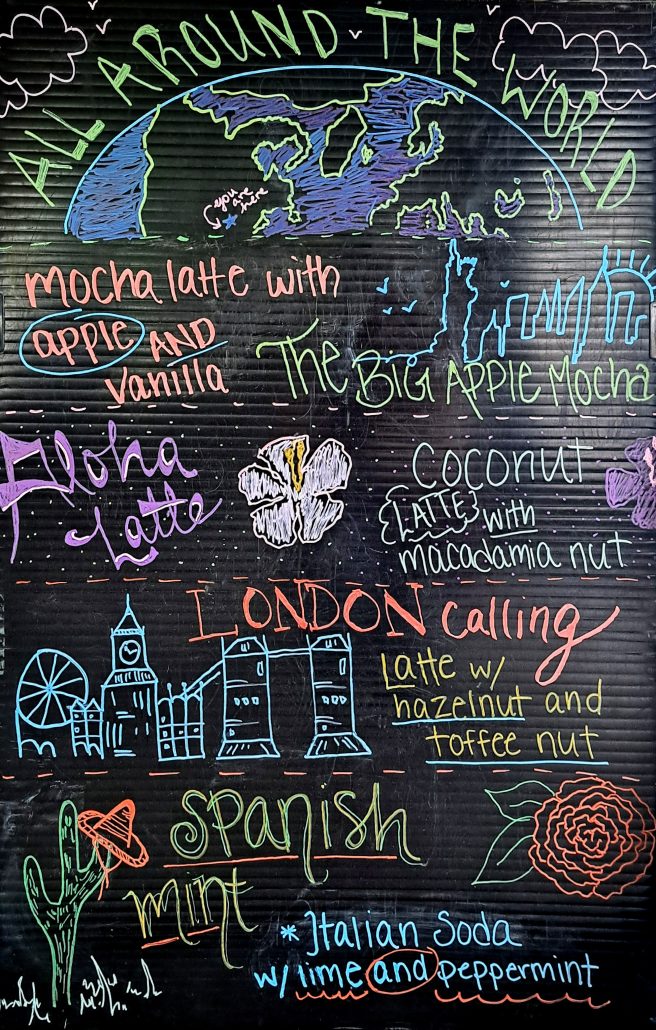 ALL AROUND THE WORLD
you
are
here
mocha latte with
apple AND
vanilla
The BIG APPLE Mocha
Aloha
Latte
Coconut
{LATTE} with
macadamia nut
LONDON calling
Latte w/
hazelnut and
toffee nut
Spanish
mint
*Italian Soda
w/ lime and peppermint